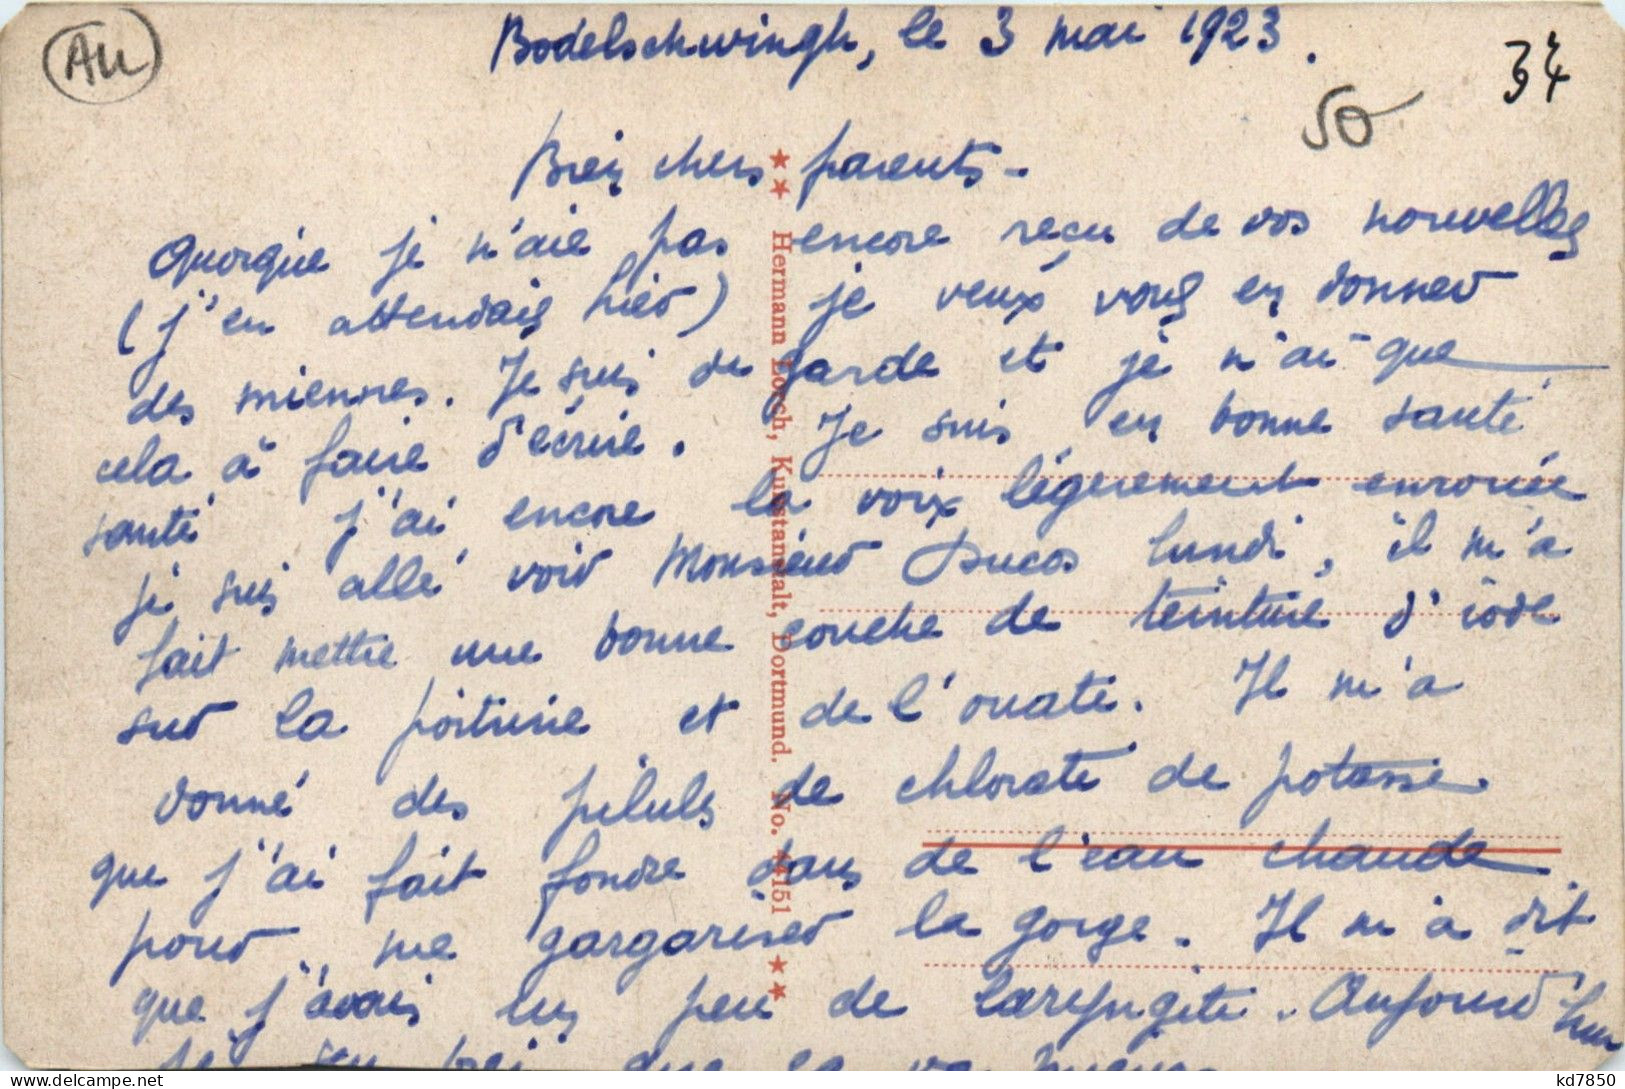 AU
Bodelschwingh, le 3 mai 1923.
34
50
Bien chers parents -
Quoique je n'aie pas encore reçu de vos nouvelles
(j'en attendais hier) je veux vous en donner
des miennes. Je suis de garde et je n'ai que
cela à faire d'écrire. Je suis en bonne santé
santé j'ai encore la voix légèrement enrouée
je suis allé voir Monsieur Ducos lundi, il m'a
fait mettre une bonne couche de teinture d'iode
sur la poitrine et de l'ouate. Il m'a
donné des pilules de chlorate de potasse
que j'ai fait fondre dans de l'eau chaude
pour me gargariser la gorge. Il m'a dit
que j'avais un peu de laryngite. Aujourd'hui
que ça va mieux
★★ Hermann Lorch, Kunstanstalt, Dortmund. No. 14151 ★★
kd7850